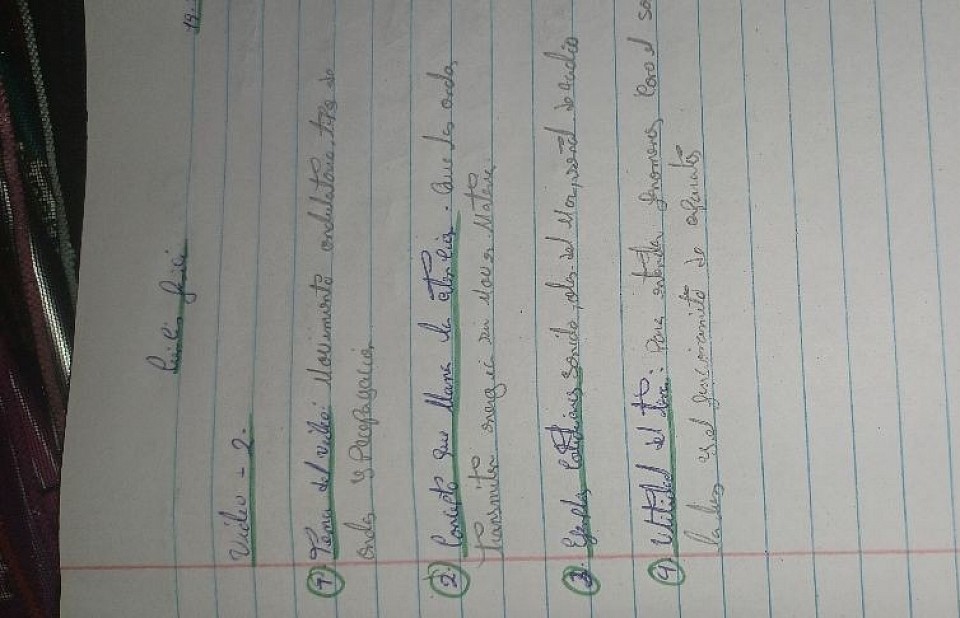 Video - 2.
① Tema del video: Movimiento ondulatorio, tipo de
onda y Propagación
② Concepto que llama la atención. Que las onda,
transmiten energía sin mover Materia.
③ Ejemplos Cotidianos sonido, olas del Mar, señal de audio
④ Utilidad del tema: Para entender fenómenos Como el so
la luz y el funcionamiento de aparatos